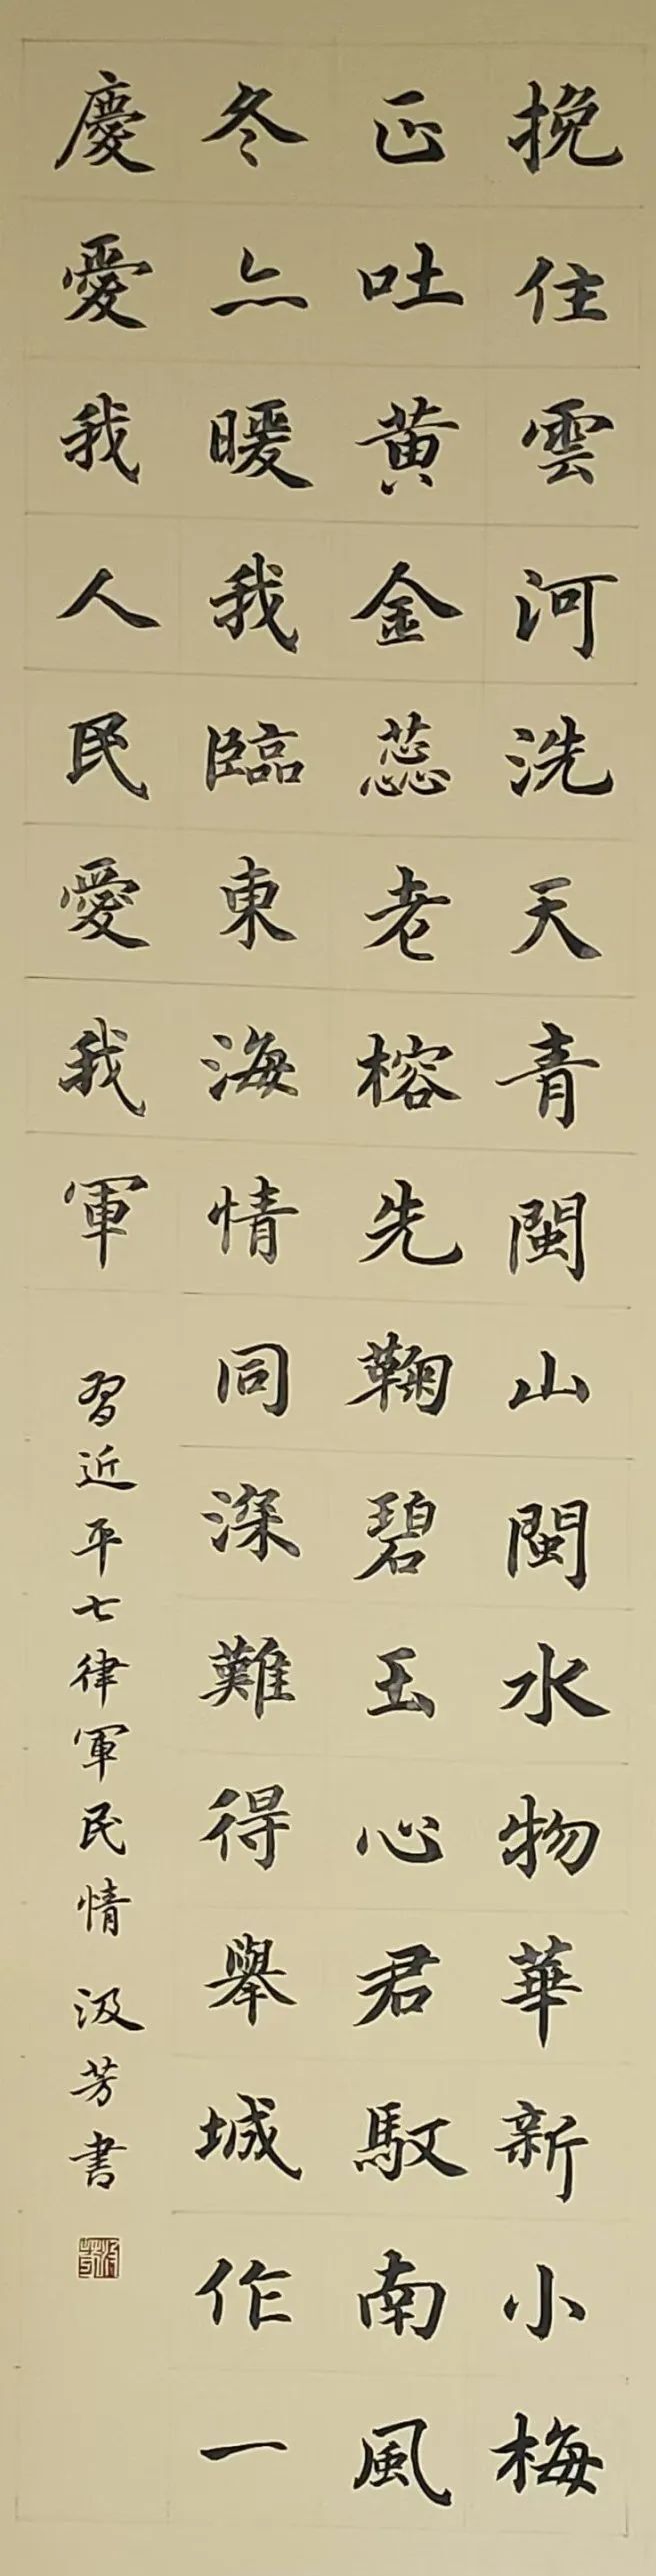 挽住雲河洗天青閩山閩水物華新小梅
正吐黄金蕊老榕先鞠碧玉心君馭南風
冬亦暖我臨東海情同深難得舉城作一
慶愛我人民愛我軍
習近平七律軍民情 汲芳書